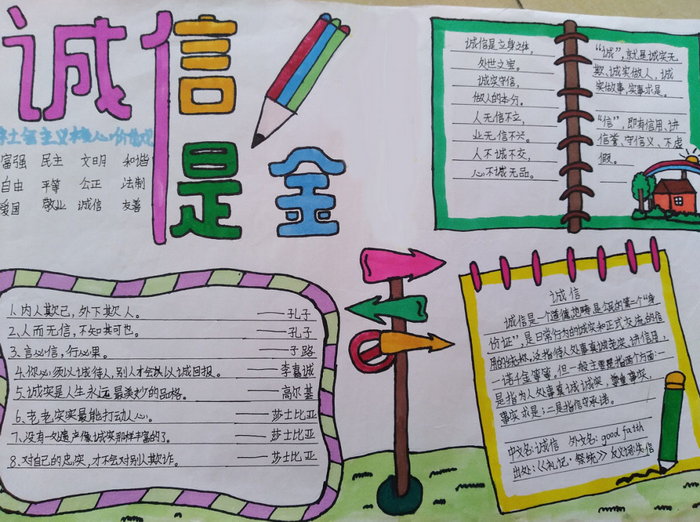 诚信
是金
社会主义核心价值观
富强 民主 文明 和谐
自由 平等 公正 法制
爱国 敬业 诚信 友善
诚信是立身之体,
处世之宝。
诚实守信,
做人的本分。
人无信不立,
业无信不兴。
人不诚不交,
心不诚无品。
“诚”,就是诚实无
欺、诚实做人,诚
实做事,实事求是。
“信”,即有信用、讲
信誉、守信义、不虚
假。
1.内人欺己,外下欺人。——孔子
2、人而无信,不知其可也。——孔子
3、言必信,行必果。——子路
4.你必须以诚待人,别人才会以诚回报。——李嘉诚
5、诚实是人生永远最美妙的品格。——高尔基
6、老老实实最能打动人心。——莎士比亚
7、没有一处遗产像诚实那样丰富的了。——莎士比亚
8、对自己的忠实,才不会对别人欺诈。——莎士比亚
诚信
诚信是一个道德范畴,是公民的第二个“身
份证”,是日常行为的诚实和正式交流的信
用的统称。泛指待人处事真诚、老实、讲信用,
一诺千金等等,但一般主要是指两个方面:一
是指为人处事真诚诚实,尊重事实,
事实求是;二是指信守承诺。
中文名:诚信 外文名: good faith
出处:《礼记·祭统》 反义词:失信